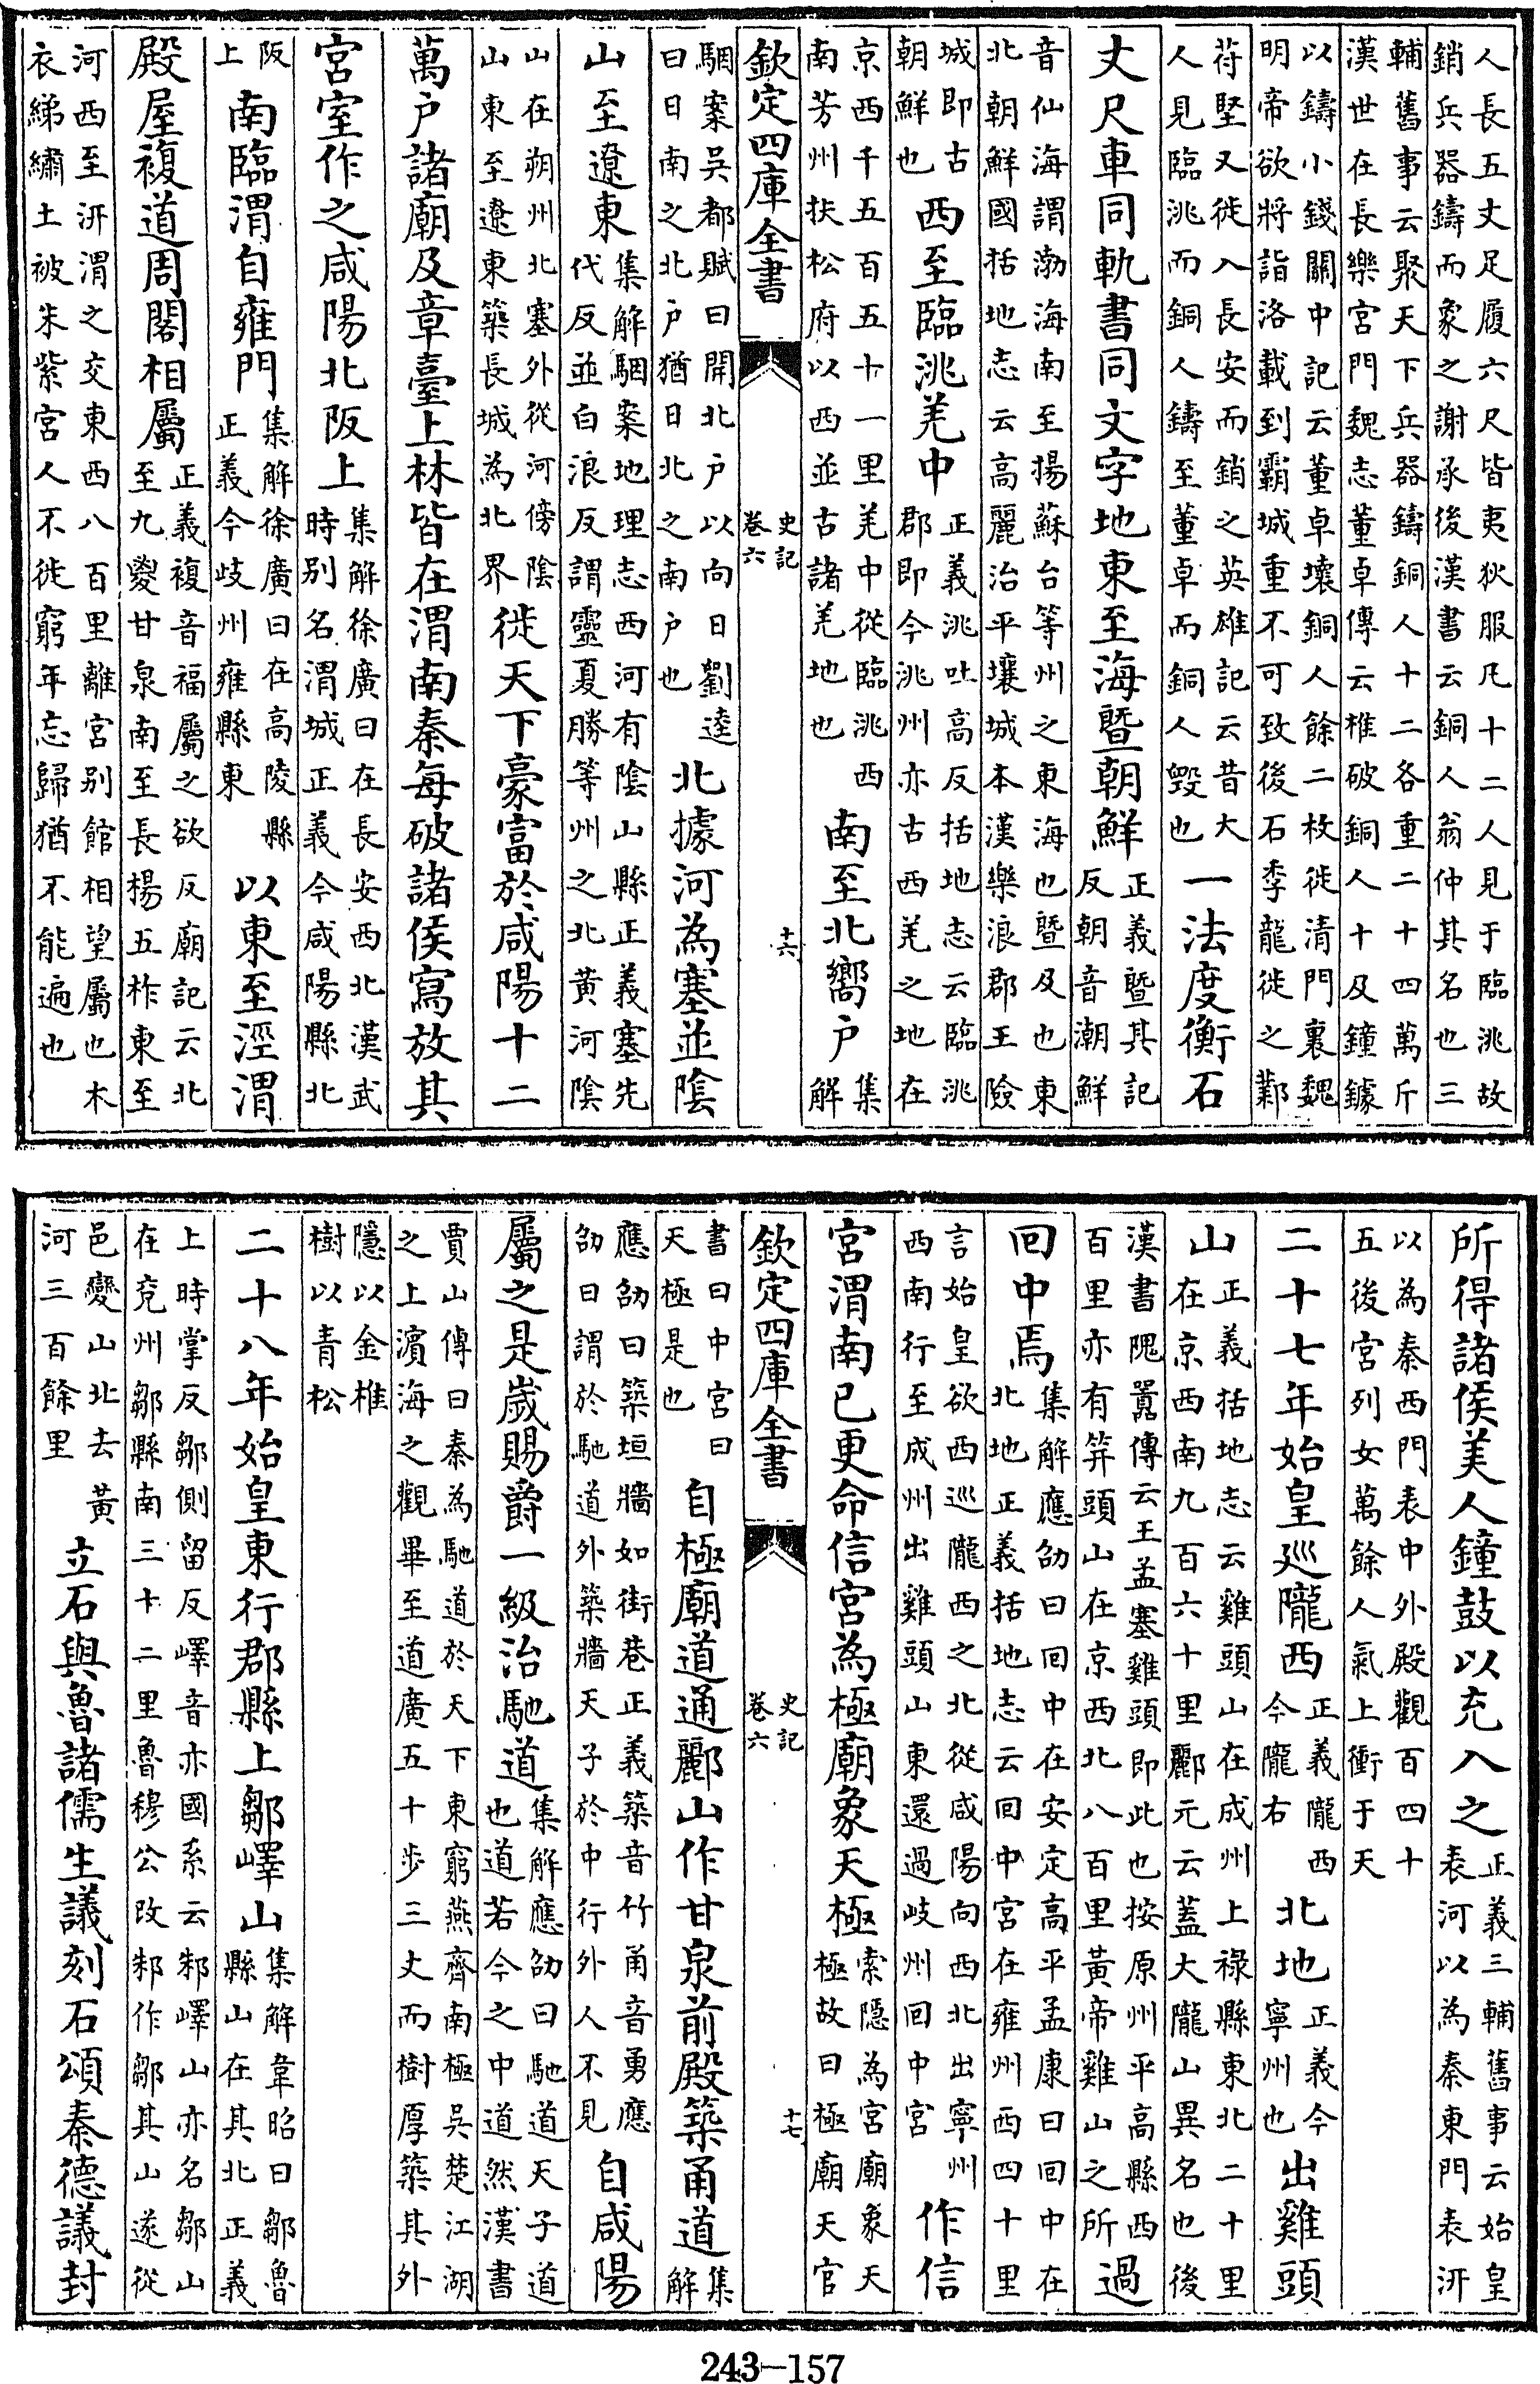 人長五丈足履六尺皆夷狄服凡十二人見于臨洮故
銷兵器鑄而象之謝承後漢書云銅人翁仲其名也三
輔舊事云聚天下兵器鑄銅人十二各重二十四萬斤
漢世在長樂宮門魏志董卓傳云椎破銅人十及鐘鐻
以鑄小錢關中記云董卓壞銅人餘二枚徙清門裏魏
明帝欲將詣洛載到霸城重不可致後石季龍徙之鄴
苻堅又徙入長安而銷之英雄記云昔大
人見臨洮而銅人鑄至董卓而銅人毀也
一法度衡石
丈尺車同軌書同文字地東至海暨朝鮮
正義暨其記
反朝音潮鮮
音仙海謂渤海南至揚蘇台等州之東海也暨及也東
北朝鮮國括地志云高麗治平壤城本漢樂浪郡王險
城即古
朝鮮也
西至臨洮羌中
正義洮吐高反括地志云臨洮
郡即今洮州亦古西羌之地在
京西千五百五十一里羌中從臨洮西
南芳州扶松府以西並古諸羌地也
南至北嚮戶
集
解
欽定四庫全書
史記
卷六
十六
駰案吳都賦曰開北戶以向日劉逵
曰日南之北戶猶日北之南戶也
北據河為塞並陰
山至遼東
集解駰案地理志西河有陰山縣正義塞先
代反並白浪反謂靈夏勝等州之北黃河陰
山在朔州北塞外從河傍陰
山東至遼東築長城為北界
徙天下豪富於咸陽十二
萬戶諸廟及章臺上林皆在渭南秦每破諸侯寫放其
宮室作之咸陽北阪上
集解徐廣曰在長安西北漢武
時別名渭城正義今咸陽縣北
阪
上
南臨渭自雍門
集解徐廣曰在高陵縣
正義今岐州雍縣東
以東至涇渭
殿屋複道周閣相屬
正義複音福屬之欲反廟記云北
至九嵏甘泉南至長楊五柞東至
河西至汧渭之交東西八百里離宮別館相望屬也木
衣綈繡土被朱紫宮人不徙窮年忘歸猶不能遍也
所得諸侯美人鐘鼓以充入之
正義三輔舊事云始皇
表河以為秦東門表汧
以為秦西門表中外殿觀百四十
五後宮列女萬餘人氣上衝于天
二十七年始皇廵隴西
正義隴西
今隴右
北地
正義今
寧州也
出雞頭
山
正義括地志云雞頭山在成州上祿縣東北二十里
在京西南九百六十里酈元云蓋大隴山異名也後
漢書隗囂傳云王孟塞雞頭即此也按原州平高縣西
百里亦有笄頭山在京西北八百里黃帝雞山之所
過
回中焉
集解應劭曰回中在安定高平孟康曰回中在
北地正義括地志云回中宮在雍州西四十里
言始皇欲西巡隴西之北從咸陽向西北出寧州
西南行至成州出雞頭山東還過岐州回中宮
作信
宮渭南已更命信宮為極廟象天極
索隱為宮廟象天
極故曰極廟天官
書曰中宮曰
天極是也
自極廟道通酈山作甘泉前殿築甬道
集
解
應劭曰築垣牆如街巷正義築音竹甬音勇應
劭曰謂於馳道外築牆天子於中行外人不見
自咸陽
屬之是歲賜爵一級治馳道
集解應劭曰馳道天子道
也道若今之中道然漢書
賈山傳曰秦為馳道於天下東窮燕齊南極吳楚江湖
之上濱海之觀畢至道廣五十步三丈而樹厚築其外
隱以金椎
樹以青松
二十八年始皇東行郡縣上鄒嶧山
集解韋昭曰鄒魯
縣山在其北正義
上時掌反鄒側留反嶧音亦國系云邾嶧山亦名鄒山
在兗州鄒縣南三十二里魯穆公改邾作鄒其山遂從
邑變山北去黃
河三百餘里
立石與魯諸儒生議刻石頌秦德議封
欽定四庫全書
史記
卷六
十七
243-157